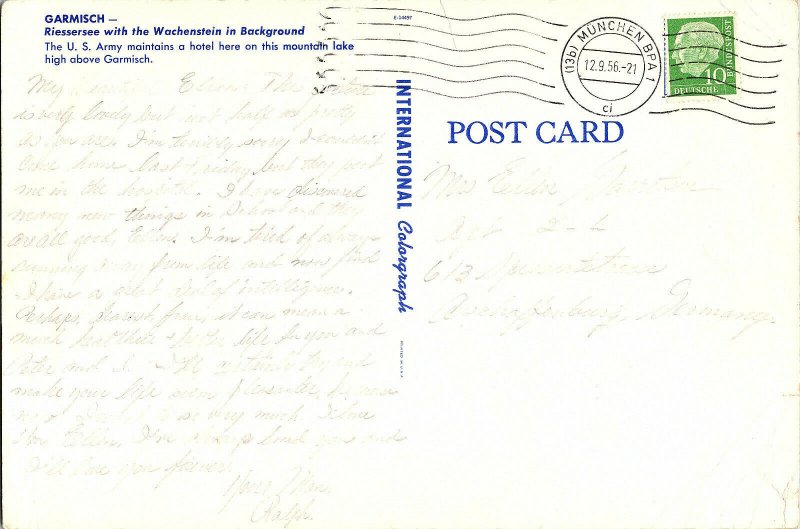 GARMISCH —
Riessersee with the Wachenstein in Background
The U. S. Army maintains a hotel here on this mountain lake
high above Garmisch.
E-14497
(13b) MÜNCHEN BPA 1
12.9.56.-21
ci
10
DEUTSCHE
BUNDESPOST
INTERNATIONAL Colorgraph
POST CARD
My Ellen, The
is very lovely but not half as pretty
as you are. I'm terribly sorry I couldn't
come home last Friday, but they put
me in the hospital. I have discovered
many new things in School and they
are all good, Ellen. I'm tired of always
running away from life and now find
I have a great deal of intelligence.
Perhaps, dearest, it can mean a
much better life for you and
Peter and I. I'll certainly try and
make your life seem pleasanter, because
I so very much. I love
you Ellen, I've always loved you and
I'll love you forever.
Your Man,
Ralph.
Mrs Ellen
Apt 2-L
613
Aschaffenburg, Germany